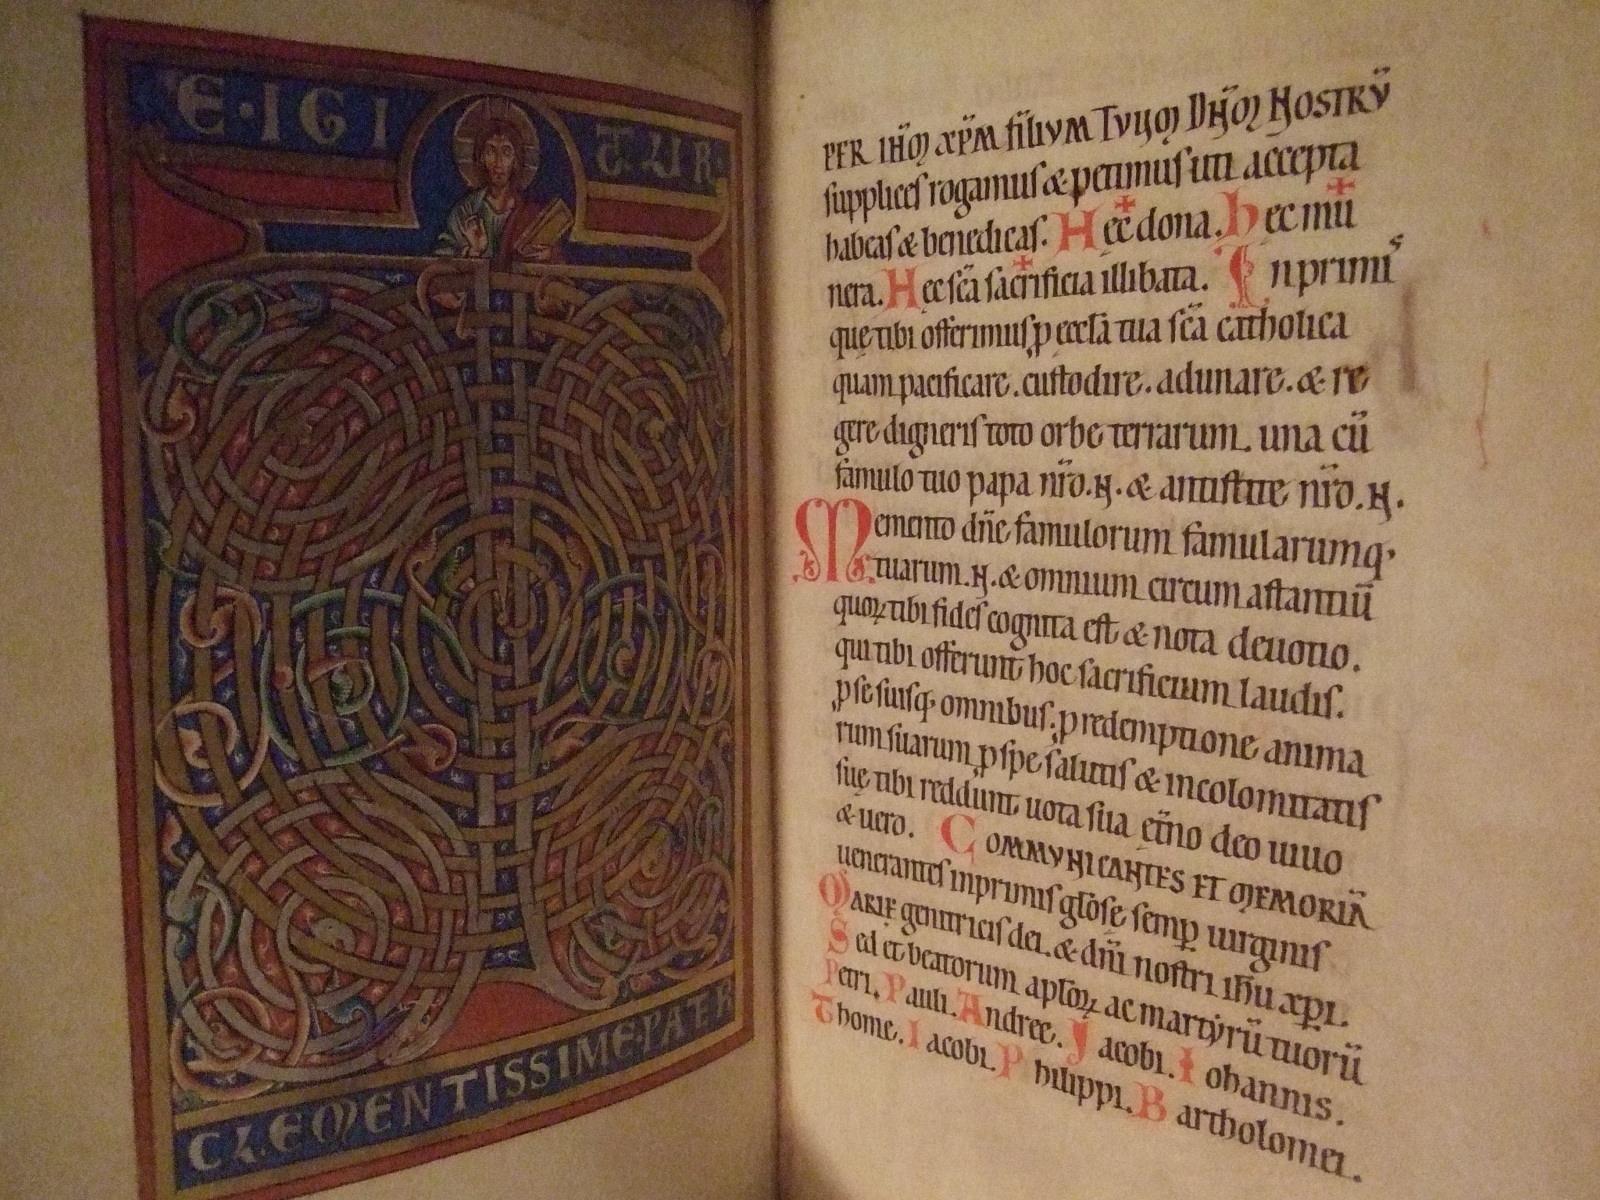 E·IGI
TUR·
CLEMENTISSIME·PATR
PER IHM XPM filium TUUM DNM NOSTRU
supplices rogamus & petimus uti accepta
habeas & benedicas. Hec dona. hec mu
nera. Hec scā sacrificia illibata. In primis
quę tibi offerimus p ecclā tua scā catholica
quam pacificare. custodire. adunare. & re
gere digneris toto orbe terrarum. una cū
famulo tuo papa nrō. N. & antistite nrō. N.
Memento dn̄e famulorum famularumq.
tuarum. N. & omnium circum astantiū
quoꝝ tibi fides cognita est & nota deuotio.
qui tibi offerunt hoc sacrificium laudis.
p se suisq. omnibus. p redemptione anima
rum suarum p spe salutis & incolomitatis
suę tibi reddunt uota sua et̄no deo uiuo
& uero. COMMUNICANTES ET MEMORIĀ
uenerantes inprimis glōse semp uirginis
MARIE genitricis dei. & dn̄i nostri ihū xp̄i.
Sed et beatorum aplōꝝ ac martyrū tuorū
Petri. Pauli. Andree. Jacobi. Iohannis.
Thome. Iacobi. Philippi. Bartholomei.